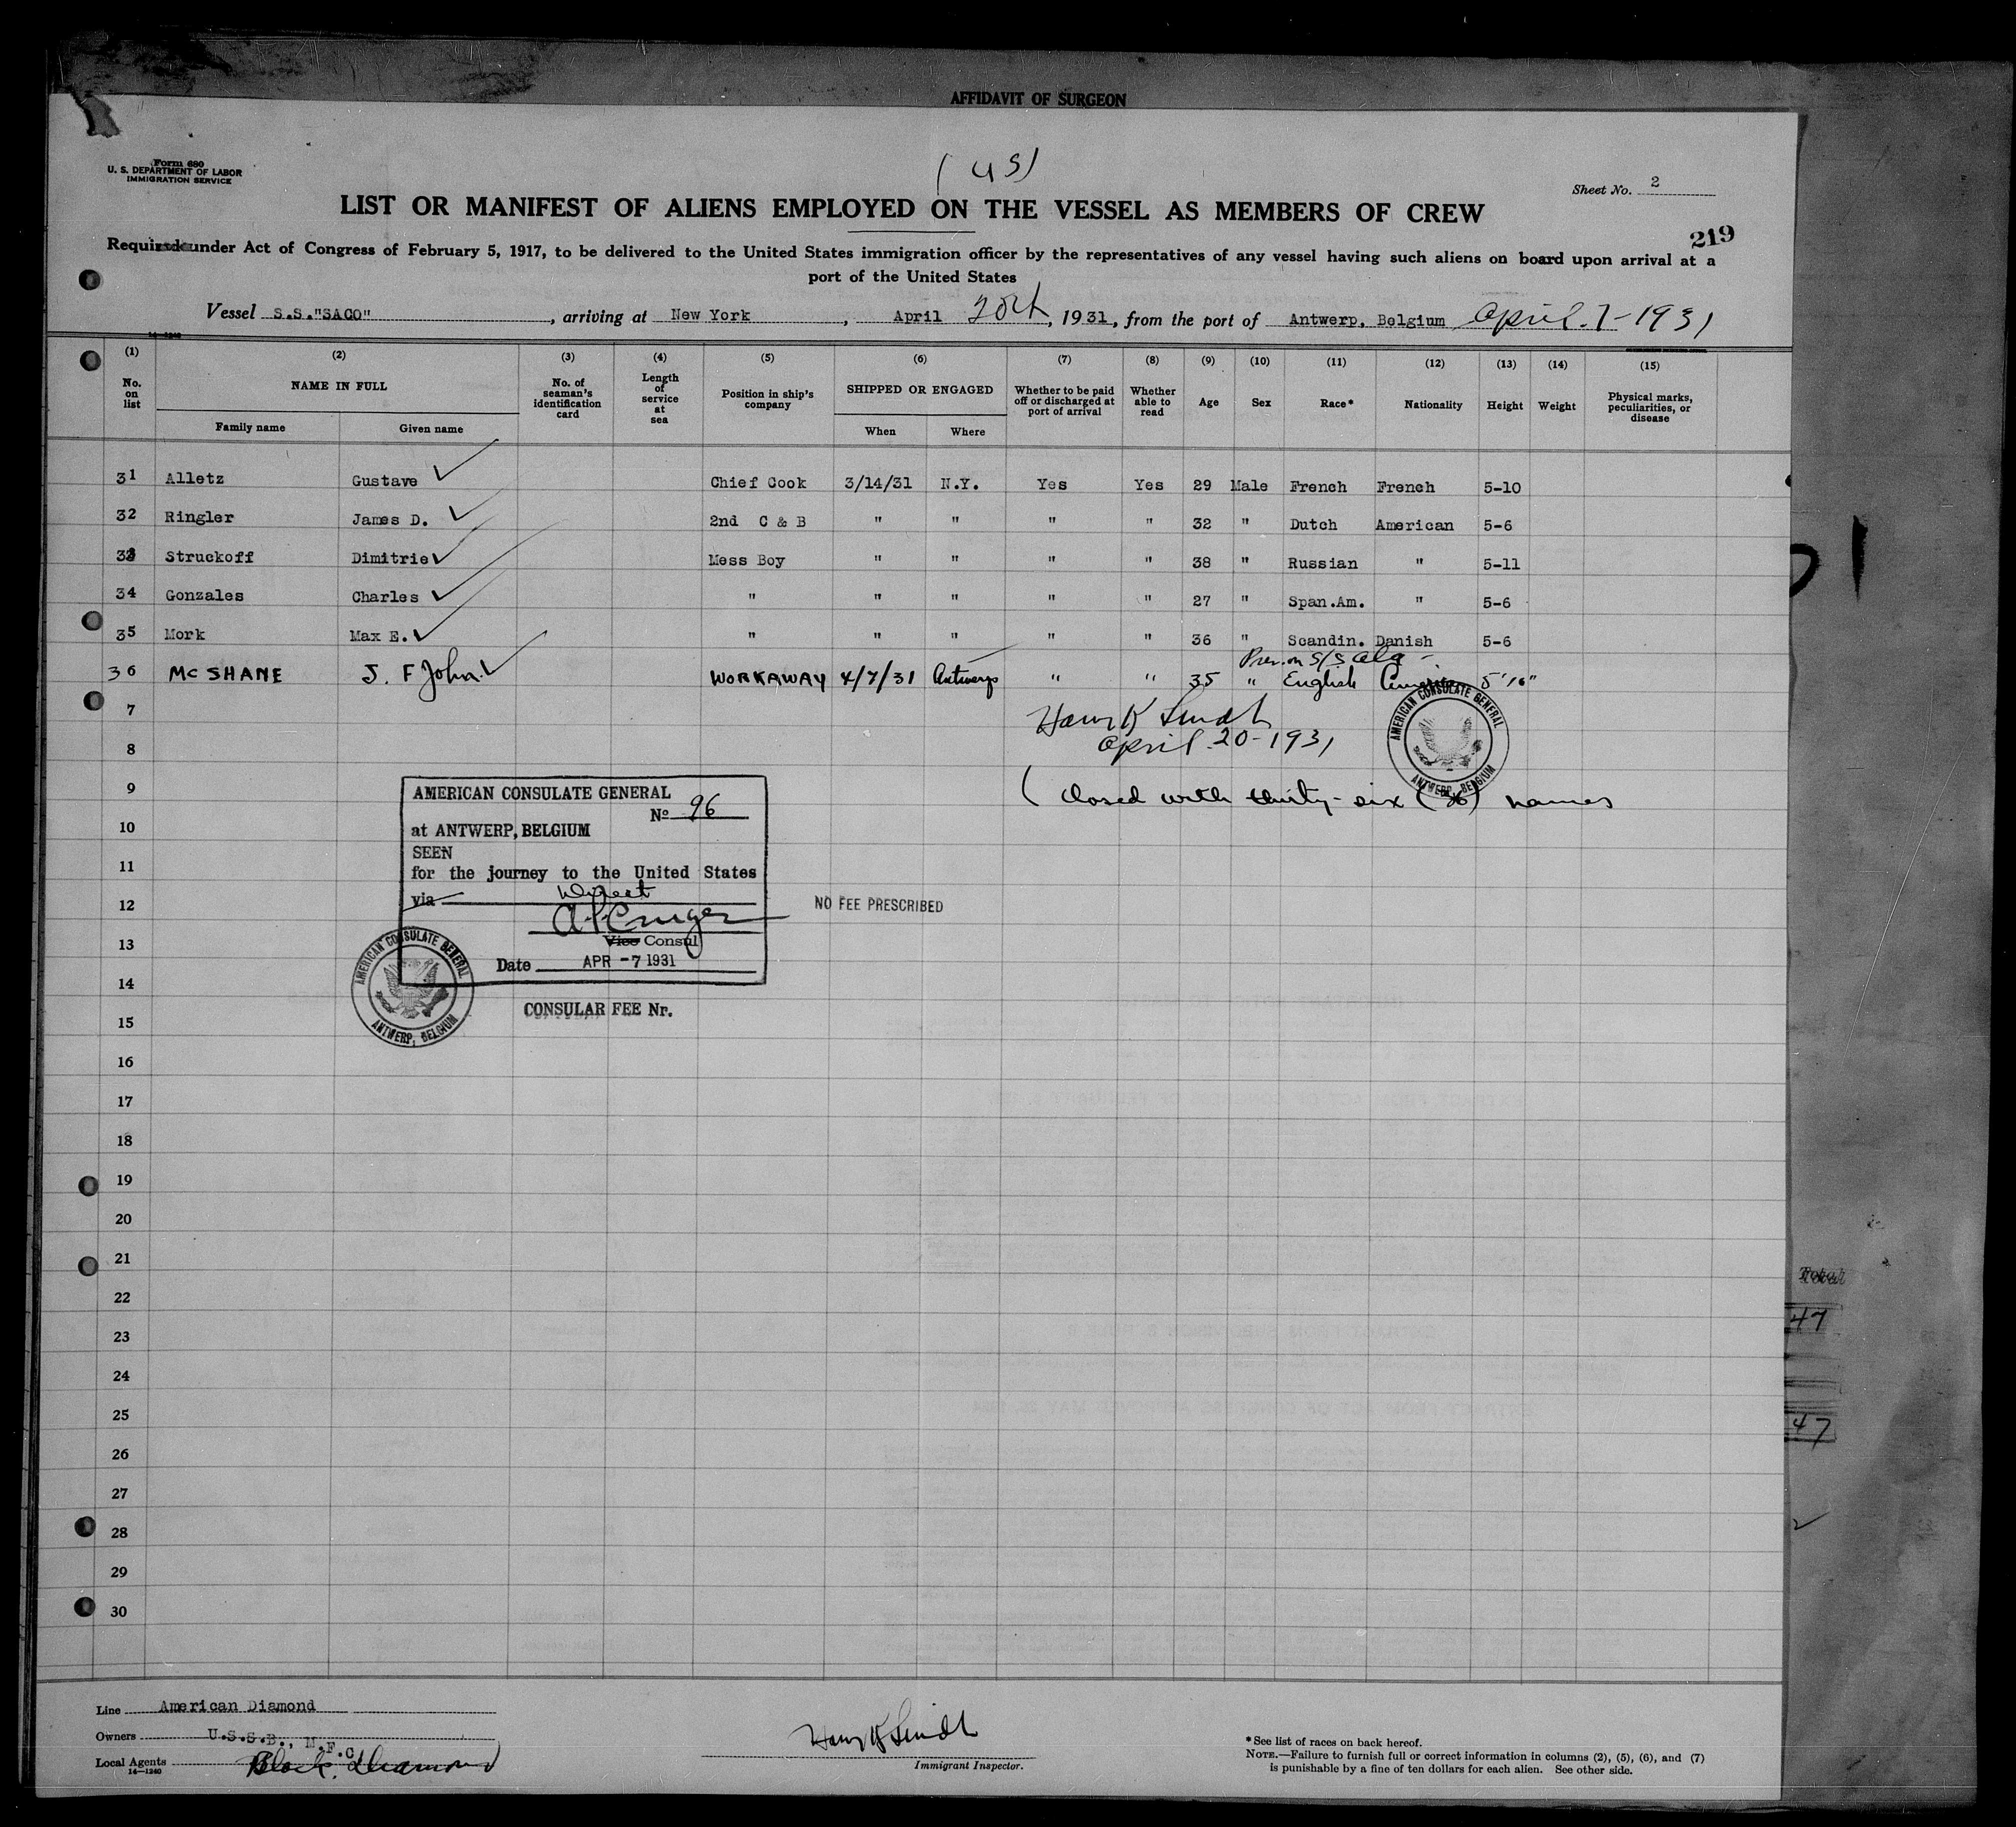 AFFIDAVIT OF SURGEON
Form 680
U. S. DEPARTMENT OF LABOR
IMMIGRATION SERVICE
(US)
Sheet No. 2
LIST OR MANIFEST OF ALIENS EMPLOYED ON THE VESSEL AS MEMBERS OF CREW
219
Required under Act of Congress of February 5, 1917, to be delivered to the United States immigration officer by the representatives of any vessel having such aliens on board upon arrival at a
port of the United States
Vessel S.S."SACO", arriving at New York, April 20th, 1931, from the port of Antwerp, Belgium April 7-1931
14-1240
(1) (2) (3) (4) (5) (6) (7) (8) (9) (10) (11) (12) (13) (14) (15)
No. on list NAME IN FULL No. of seaman's identification card Length of service at sea Position in ship's company SHIPPED OR ENGAGED Whether to be paid off or discharged at port of arrival Whether able to read Age Sex Race* Nationality Height Weight Physical marks, peculiarities, or disease
Family name Given name When Where
31 Alletz Gustave Chief Cook 3/14/31 N.Y. Yes Yes 29 Male French French 5-10
32 Ringler James D. 2nd C & B " " " " 32 " Dutch American 5-6
33 Struckoff Dimitrie Mess Boy " " " " 38 " Russian " 5-11
34 Gonzales Charles " " " " " 27 " Span.Am. " 5-6
35 Mork Max E. " " " " " 36 " Scandin. Danish 5-6
s/s
36 MC SHANE J. F John WORKAWAY 4/7/31 Antwerp " " 35 " English 5'10"
7
April-20-1931
8
AMERICAN CONSULATE GENERAL
ANTWERP, BELGIUM
9
(Closed with thirty-six (36) names
10
11
12
13
14
15
16
17
18
19
20
21
22
23
24
25
26
27
28
29
30
AMERICAN CONSULATE GENERAL
No 96
at ANTWERP, BELGIUM
SEEN
for the journey to the United States
via Direct
Vice Consul
Date APR -7 1931
NO FEE PRESCRIBED
AMERICAN CONSULATE GENERAL
ANTWERP, BELGIUM
CONSULAR FEE Nr.
Total
47
47
Line American Diamond
Owners U.S.S.B., M.F.C.
Local Agents Black Diamond
14-1240
Immigrant Inspector.
*See list of races on back hereof.
NOTE.—Failure to furnish full or correct information in columns (2), (5), (6), and (7)
is punishable by a fine of ten dollars for each alien. See other side.